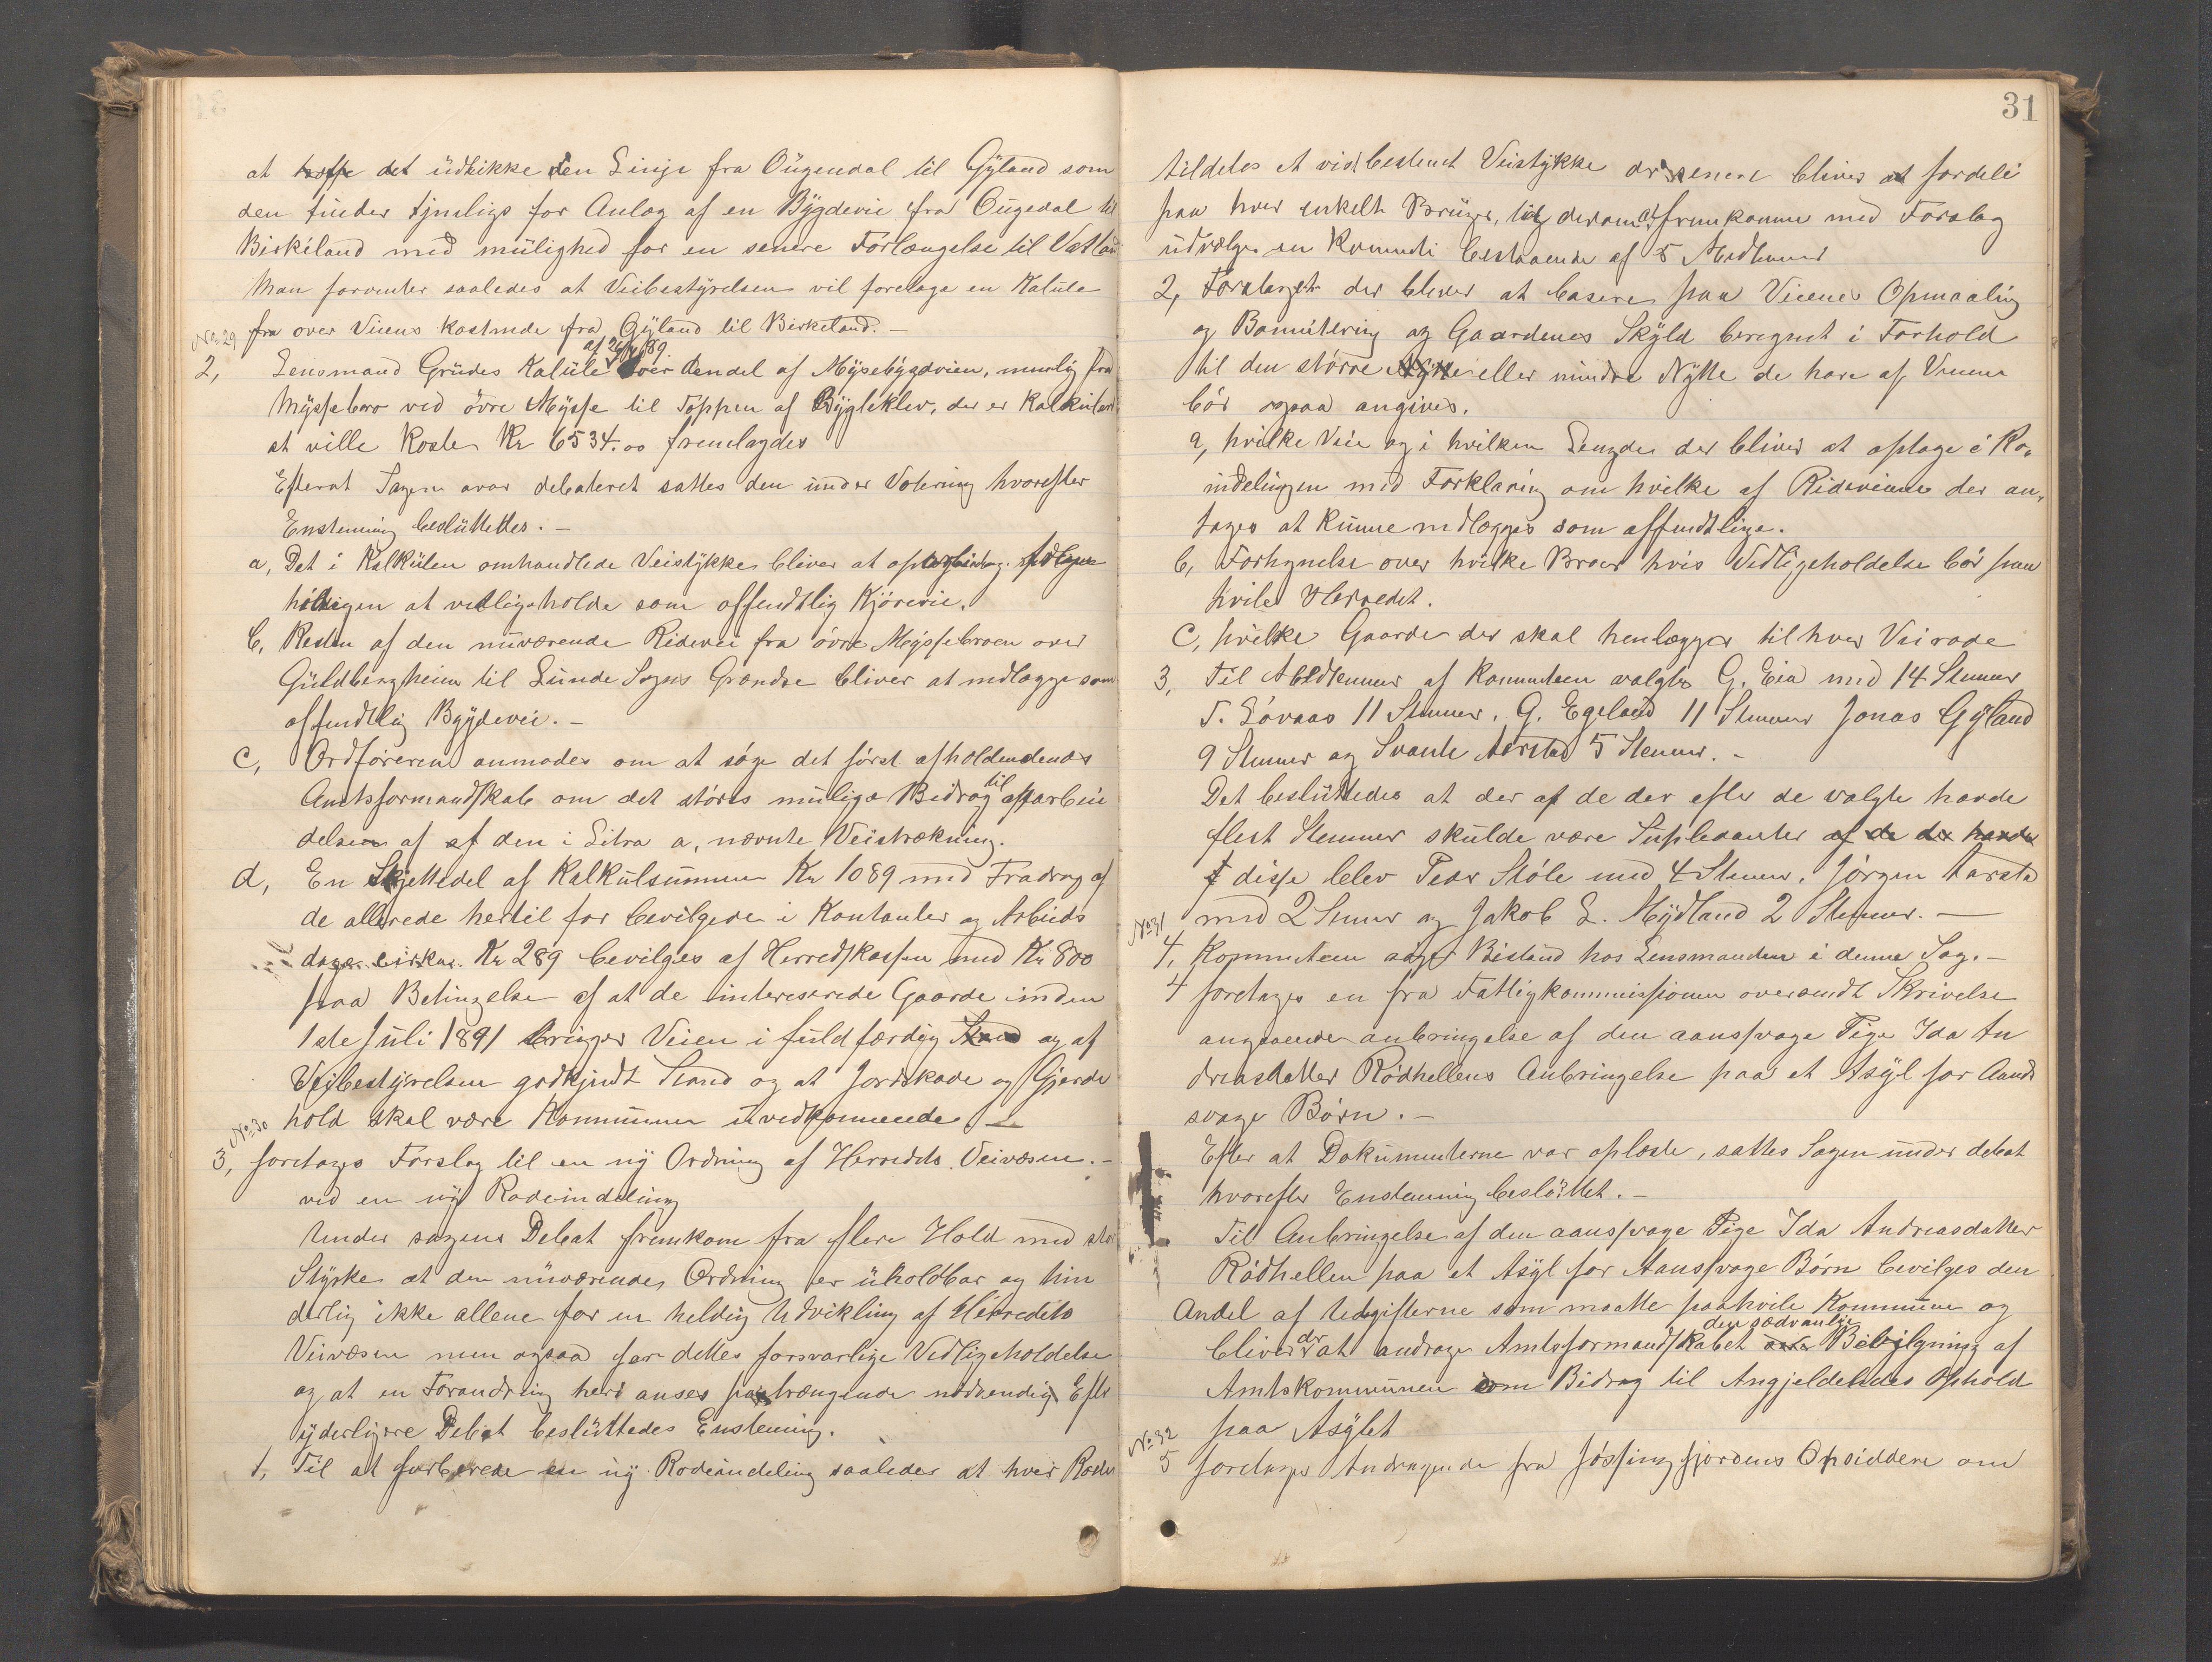 at det udstikke den Linje fra Ougendal til Gyland som
den finder tjenligs for Anlæg af en Bygdevei fra Ougedal til
Birkeland med mulighed for en senere Forlængelse til Vatland
Man forventer saaledes at Veibestyrelsen vil foretage en Kalule
fra over Veiens Kostende fra Gyland til Birkeland.-
No 29
2, Lensmand Grudes Kalule af 26/4 89 over Rendel af Mysebygdveien, nemlig fra
Myssebro ved øvre Mysse til Toppen af Bygleklev, der er Kalkuleret
at ville Koste Kr 6534.00 fremlagdes
Efterat Sagen avar debateret sattes den under Votering hvorefter
Enstemig besluttedes.-
a, Det i Kalkülen omhandlede Veistykke bliver at
at vedligeholde som offendtlig Kjørevei.
b, Resten af den nuværende Ridevei fra øvre Myssebroen over
Guldbergheien til Lunde Sogns Grændse bliver at nedlægge som
offendtlig Bygdevei.-
c, Ordføreren anmodes om at søge det først afholdendends
Amtsformandskab om det størst mulige Bidrag til oparbei
delsen af af den i Litra a, nævnte Veistrækning.
d, En Skjettedel af Kalkulsummen Kr 1089 med Fradrag af
de allerede hertil for bevilgede i Kontanter og Arbeids
dage cirka Kr 289 bevilges af Herredskassen med Kr 800
paa Betingelse af at de interesserede Gaarde inden
1ste Juli 1891 bringer Veien i fuldfærdig Stand og af
Veibestyrelsen godkjendt Stand og at Jordskade og Gjerde
hold skal være Kommunen uvedkommende.-
No 30
3, foretages Forslag til en ny Ordning af Herredets Veivæsen.-
ved en ny Rodeinddeling
Under sagens Debat fremkom fra flere Hold med stor
Styrke at den nuværende Ordning er uholdbar og hin
derlig ikke allene for en heldig Udvikling af Herredets
Veivæsen men ogsaa for dettes forsvarlige Vedligeholdelse
og at en Forandring heri anses paatrængende nødvendig Efter
yderligere Debat besluttedes Enstemig.
1, Til at forberede en ny Rodeindeling saaledes at hver Rode
31
tildeles et vist bestemt Veistykke der senere bliver at fordele
paa hver enkelt Bruger, til derom at fremkomme med Forslag
udvælges en Kommite bestaaende af 5 Medlemmer
2, Forslaget der bliver at basere paa Veienes Opmaaling
og Bonnitering og Gaardenes Skyld beregnet i Forhold
til den større Nytte eller mindre Nytte de have af Veiene
bør ogsaa angives.
a, hvilke Veie og i hvilken Længde der bliver at optage i Ro„
indelingen med Forklaring om hvilke af Rideveiene der an„
tages at kunne nedlægges som offendtlige.
b, Fortegnelse over hvilke Broer hvis Vedligeholdelse bør paa
hvile Herredet.
C, hvilke Gaarde der skal henlægges til hver Veirode
3, Til Medlemmer af Kommiteen valgtes G. Eia med 14 Stemmer
T. Løvaas 11 Stemmer, G. Egeland 11 Stemmer Jonas Gyland
9 Stemmer og Svante Aarstad 5 Stemmer.-
Det besluttedes at der af de der efter de valgte havde
flest Stemmer skulde være Supleanter af de der havde
I disse blev Peder Støle med 4 Stemmer, Jørgen Aarstad
med 2 Stemmer og Jakob L. Mydland 2 Stemmer.-
No 31
4, Kommiteen søger Bistand hos Lensmanden i denne Sag.-
4 foretages en fra Fattigkommissionen oversendt Skrivelse
angaaende anbringelse af den aansvage Pige Ida An
dreasdatter Rødhellens Anbringelse paa et Asyl for Aands
svage Børn.-
Efter at Dokumenterne var oplæste, sattes Sagen under debat
hvorefter Enstemmig besluttet.-
Til Anbringelse af den aansvage Pige Ida Andreasdatter
Rødhellen paa et Asyl for Aansvage Børn bevilges den
Andel af Udgifterne som maatte paahvile Kommune og
bliver der at andrage Amtsformandskabet den sædvanlige Bevilgning af
Amtskommunen som Bidrag til Angjeldendes Ophold
paa Asylet
No 32
5 foretages Andragende fra Jøssingfjordens Opsiddere om